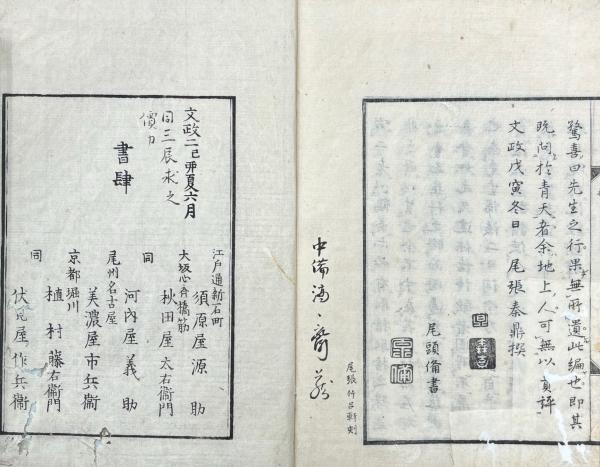 驚喜曰先生之行果無所遺此編也即其
既問於青天者余地上人可無以妄評
文政戊寅冬日　尾張秦鼎撰
尾頭脩書
尾張竹呂軒刻
文政二己卯夏六月
同三辰求之
書肆
江戸通新石町
須原屋源助
大坂心斉橋筋
秋田屋太右衛門
同
河内屋義助
尾州名古屋
美濃屋市兵衞
京都堀川
植村藤右衛門
同
伏見屋作兵衞